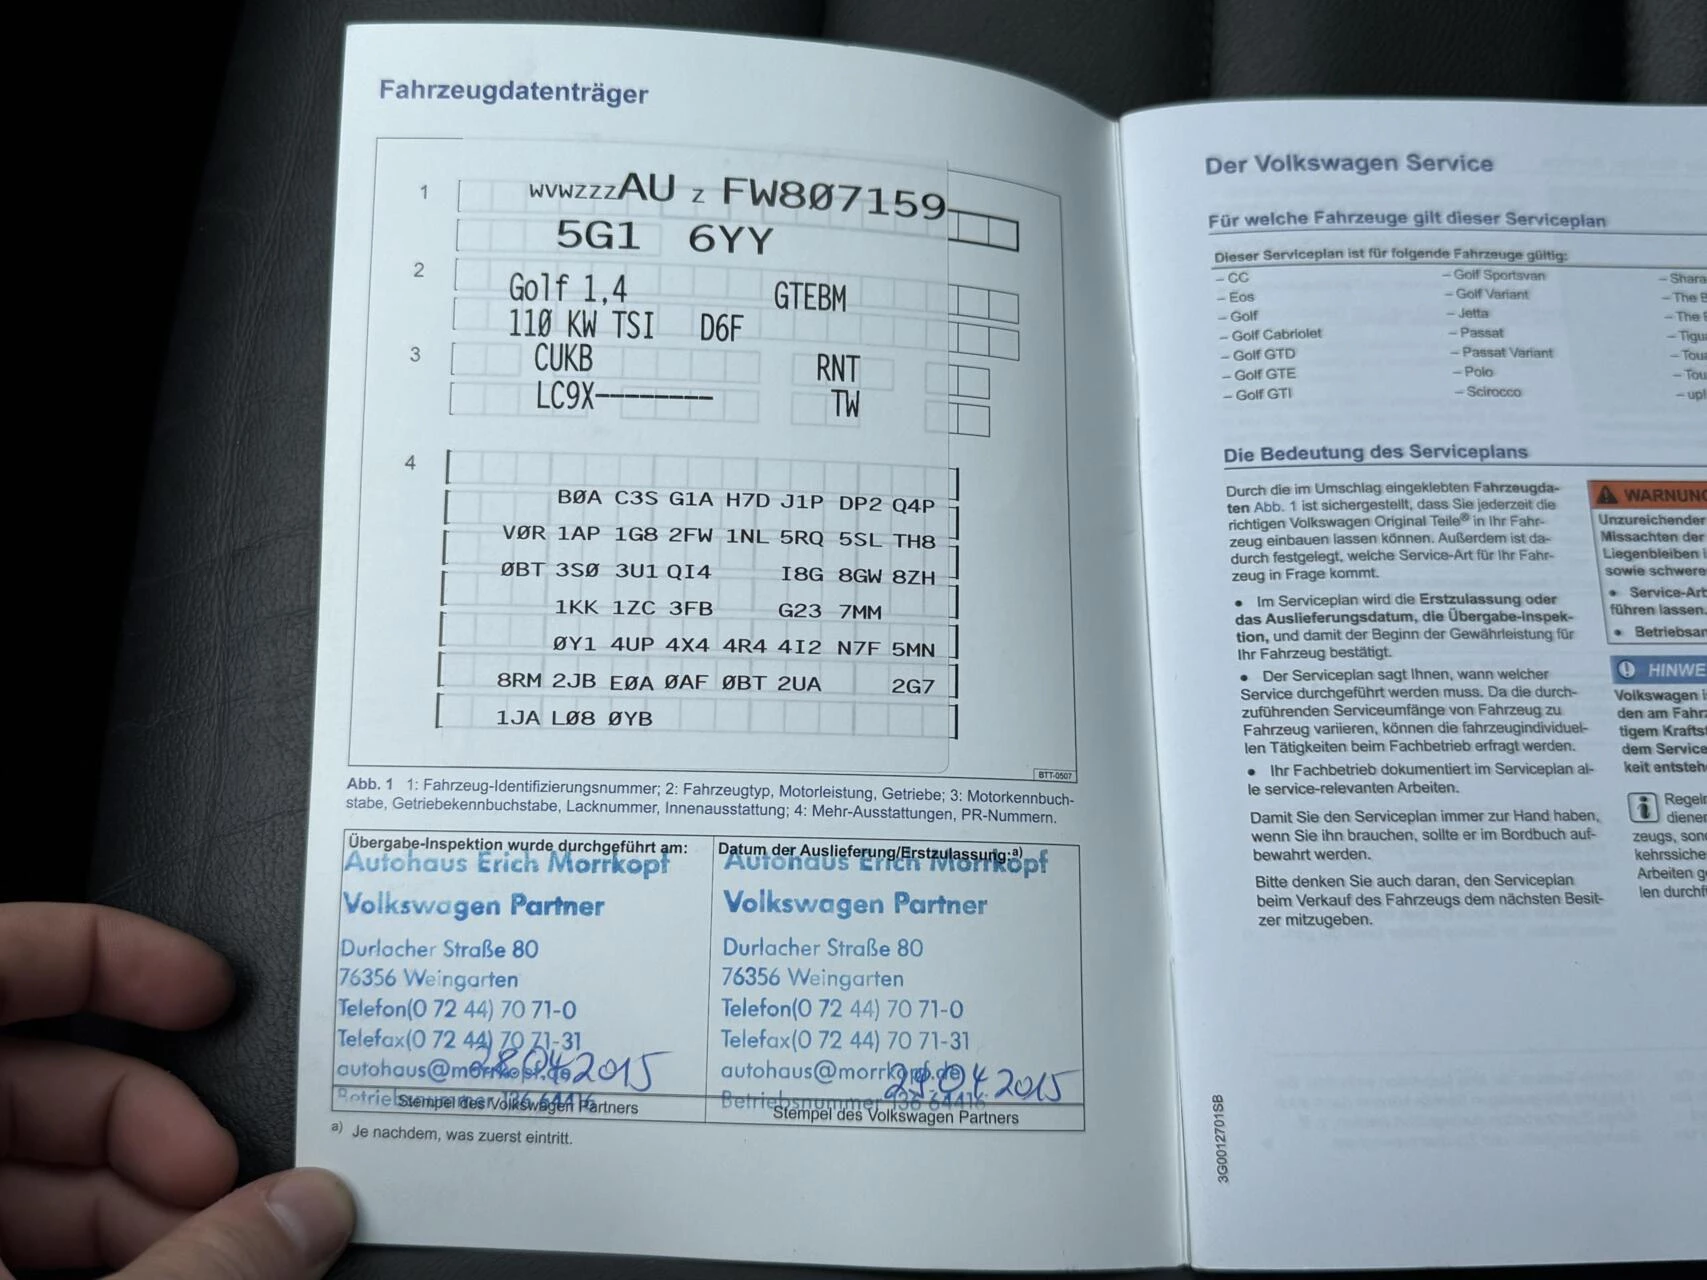 Fahrzeugdatenträger
1
WVWZZZAU Z FW8Ø7159
5G1 6YY
2
Golf 1,4 GTEBM
11Ø KW TSI D6F
3
CUKB RNT
LC9X-------- TW
4
BØA C3S G1A H7D J1P DP2 Q4P
VØR 1AP 1G8 2FW 1NL 5RQ 5SL TH8
ØBT 3SØ 3U1 QI4 I8G 8GW 8ZH
1KK 1ZC 3FB G23 7MM
ØY1 4UP 4X4 4R4 4I2 N7F 5MN
8RM 2JB EØA ØAF ØBT 2UA 2G7
1JA LØ8 ØYB
BTT-0507
Abb. 1 1: Fahrzeug-Identifizierungsnummer; 2: Fahrzeugtyp, Motorleistung, Getriebe; 3: Motorkennbuch-
stabe, Getriebekennbuchstabe, Lacknummer, Innenausstattung; 4: Mehr-Ausstattungen, PR-Nummern.
Übergabe-Inspektion wurde durchgeführt am:
Autohaus Erich Morrkopf
Volkswagen Partner
Durlacher Straße 80
76356 Weingarten
Telefon(0 72 44) 70 71-0
Telefax(0 72 44) 70 71-31
autohaus@morrkopf.de
28.04.2015
Betriebsnummer 136 64416
Stempel des Volkswagen Partners
Datum der Auslieferung/Erstzulassung:a)
Autohaus Erich Morrkopf
Volkswagen Partner
Durlacher Straße 80
76356 Weingarten
Telefon(0 72 44) 70 71-0
Telefax(0 72 44) 70 71-31
autohaus@morrkopf.de
29.04.2015
Betriebsnummer 136 64416
Stempel des Volkswagen Partners
a) Je nachdem, was zuerst eintritt.
Der Volkswagen Service
Für welche Fahrzeuge gilt dieser Serviceplan
Dieser Serviceplan ist für folgende Fahrzeuge gültig:
– CC
– Eos
– Golf
– Golf Cabriolet
– Golf GTD
– Golf GTE
– Golf GTI
– Golf Sportsvan
– Golf Variant
– Jetta
– Passat
– Passat Variant
– Polo
– Scirocco
– Shara
– The B
– The
– Tigu
– Tou
– Tou
– up!
Die Bedeutung des Serviceplans
Durch die im Umschlag eingeklebten Fahrzeugda-
ten Abb. 1 ist sichergestellt, dass Sie jederzeit die
richtigen Volkswagen Original Teile® in Ihr Fahr-
zeug einbauen lassen können. Außerdem ist da-
durch festgelegt, welche Service-Art für Ihr Fahr-
zeug in Frage kommt.
• Im Serviceplan wird die Erstzulassung oder
das Auslieferungsdatum, die Übergabe-Inspek-
tion, und damit der Beginn der Gewährleistung für
Ihr Fahrzeug bestätigt.
• Der Serviceplan sagt Ihnen, wann welcher
Service durchgeführt werden muss. Da die durch-
zuführenden Serviceumfänge von Fahrzeug zu
Fahrzeug variieren, können die fahrzeugindividuel-
len Tätigkeiten beim Fachbetrieb erfragt werden.
• Ihr Fachbetrieb dokumentiert im Serviceplan al-
le service-relevanten Arbeiten.
Damit Sie den Serviceplan immer zur Hand haben,
wenn Sie ihn brauchen, sollte er im Bordbuch auf-
bewahrt werden.
Bitte denken Sie auch daran, den Serviceplan
beim Verkauf des Fahrzeugs dem nächsten Besit-
zer mitzugeben.
WARNUNG
Unzureichender
Missachten der
Liegenbleiben i
sowie schwere
• Service-Art
führen lassen.
• Betriebsan
HINWE
Volkswagen i
den am Fahr
tigem Krafts
dem Service
keit entsteh
Regeln
diener
zeugs, son
kehrssiche
Arbeiten g
len durchf
3G0012701SB